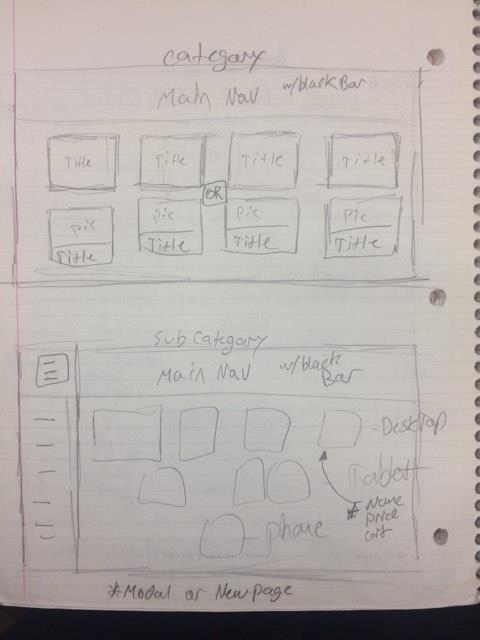 Category
Main Nav w/black Bar
Title Title Title Title
OR
Pic Pic Pic Pic
Title Title Title Title
Sub Category
Main Nav w/black
Bar
Desktop
Tablet
* Name
price
cart
phone
*Modal or New page